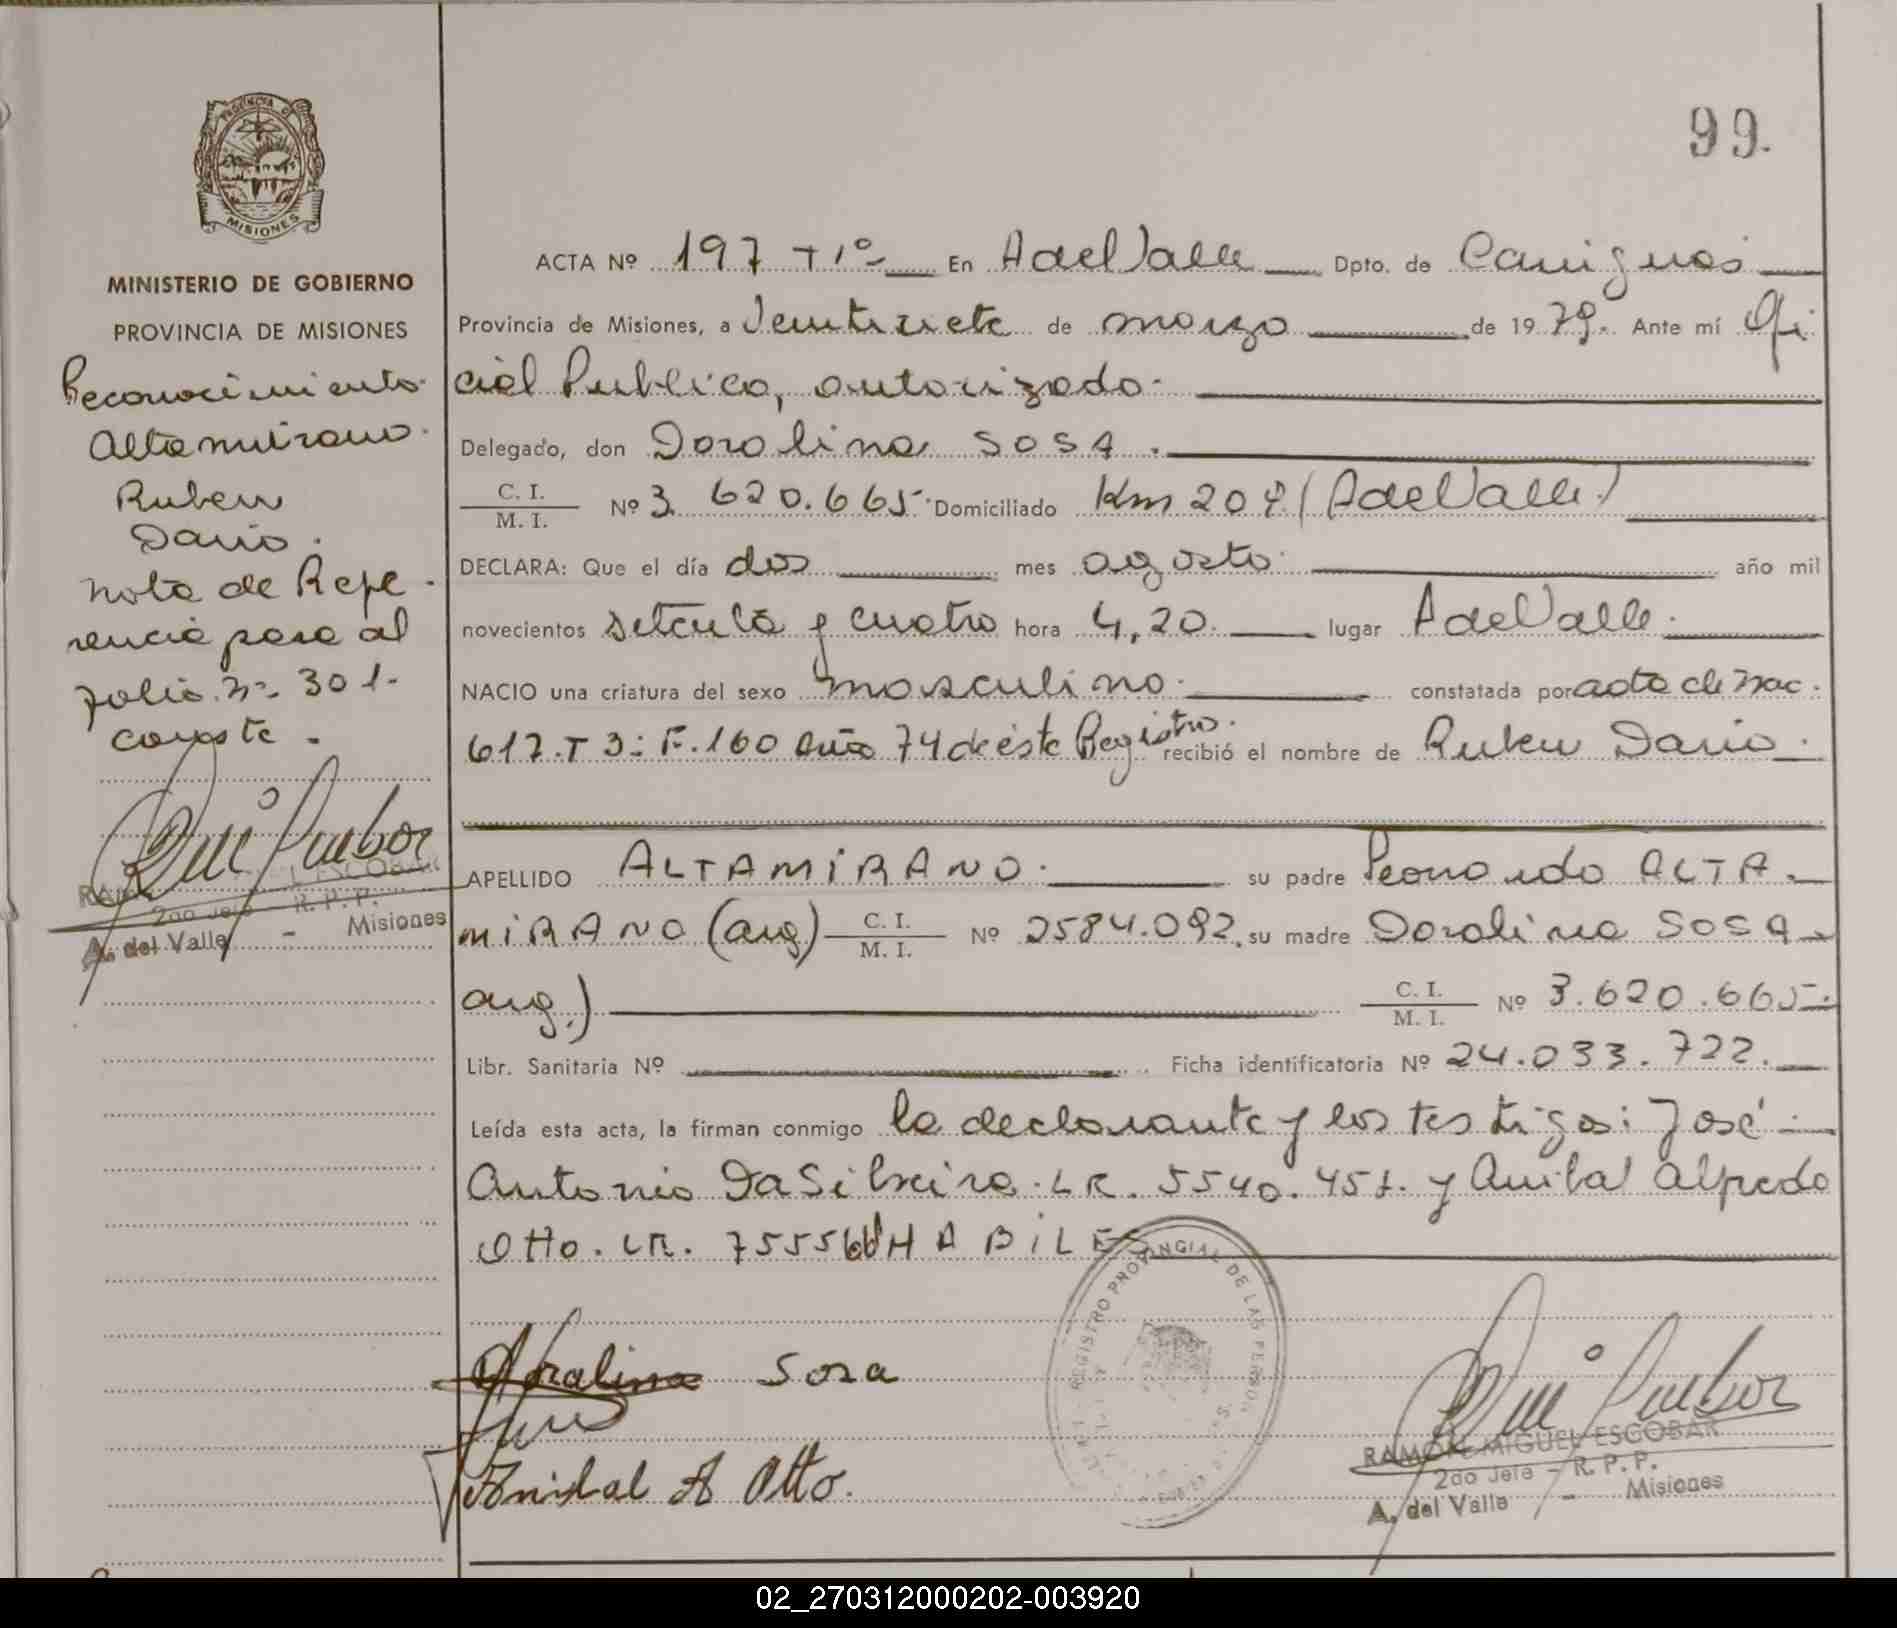 99.
PROVINCIA DE
MISIONES
MINISTERIO DE GOBIERNO
PROVINCIA DE MISIONES
Reconocimiento.
Altamirano.
Ruben
Dario.
nota de Refe-
rencia pasa al
folio nº 301.
conste.
RAMON MIGUEL ESCOBAR
2do Jefe - R. P. P.
A. del Valle - Misiones
ACTA Nº 197 T 1º En A del Valle Dpto. de Cainguas
Provincia de Misiones, a Veintisiete de marzo de 1979. Ante mí Ofi
cial Publico, autorizado.
Delegado, don Doralina SOSA.
C. I. / M. I. Nº 3.620.665. Domiciliado Km 204 (A del Valle)
DECLARA: Que el día dos mes agosto. año mil
novecientos setenta y cuatro hora 4,20. lugar A del Valle.
NACIO una criatura del sexo masculino. constatada por acta de nac.
617. T 3: F. 160 año 74 de éste Registro. recibió el nombre de Ruben Dario.
APELLIDO ALTAMIRANO. su padre Leonardo ALTA-
MIRANO (arg) C. I. / M. I. Nº 2584.092. su madre Doralina SOSA
arg.) C. I. / M. I. Nº 3.620.665.
Libr. Sanitaria Nº Ficha identificatoria Nº 24.033.722.
Leída esta acta, la firman conmigo la declarante y los testigos: José
Antonio DaSilveira. LR. 5540.451. y Anibal Alfredo
Otto. LR. 755566 HABILES
REGISTRO PROVINCIAL DE LAS PERSONAS
Doralina Sosa
Anibal A Otto.
RAMON MIGUEL ESCOBAR
2do Jefe - R. P. P.
A. del Valle - Misiones
02_270312000202-003920